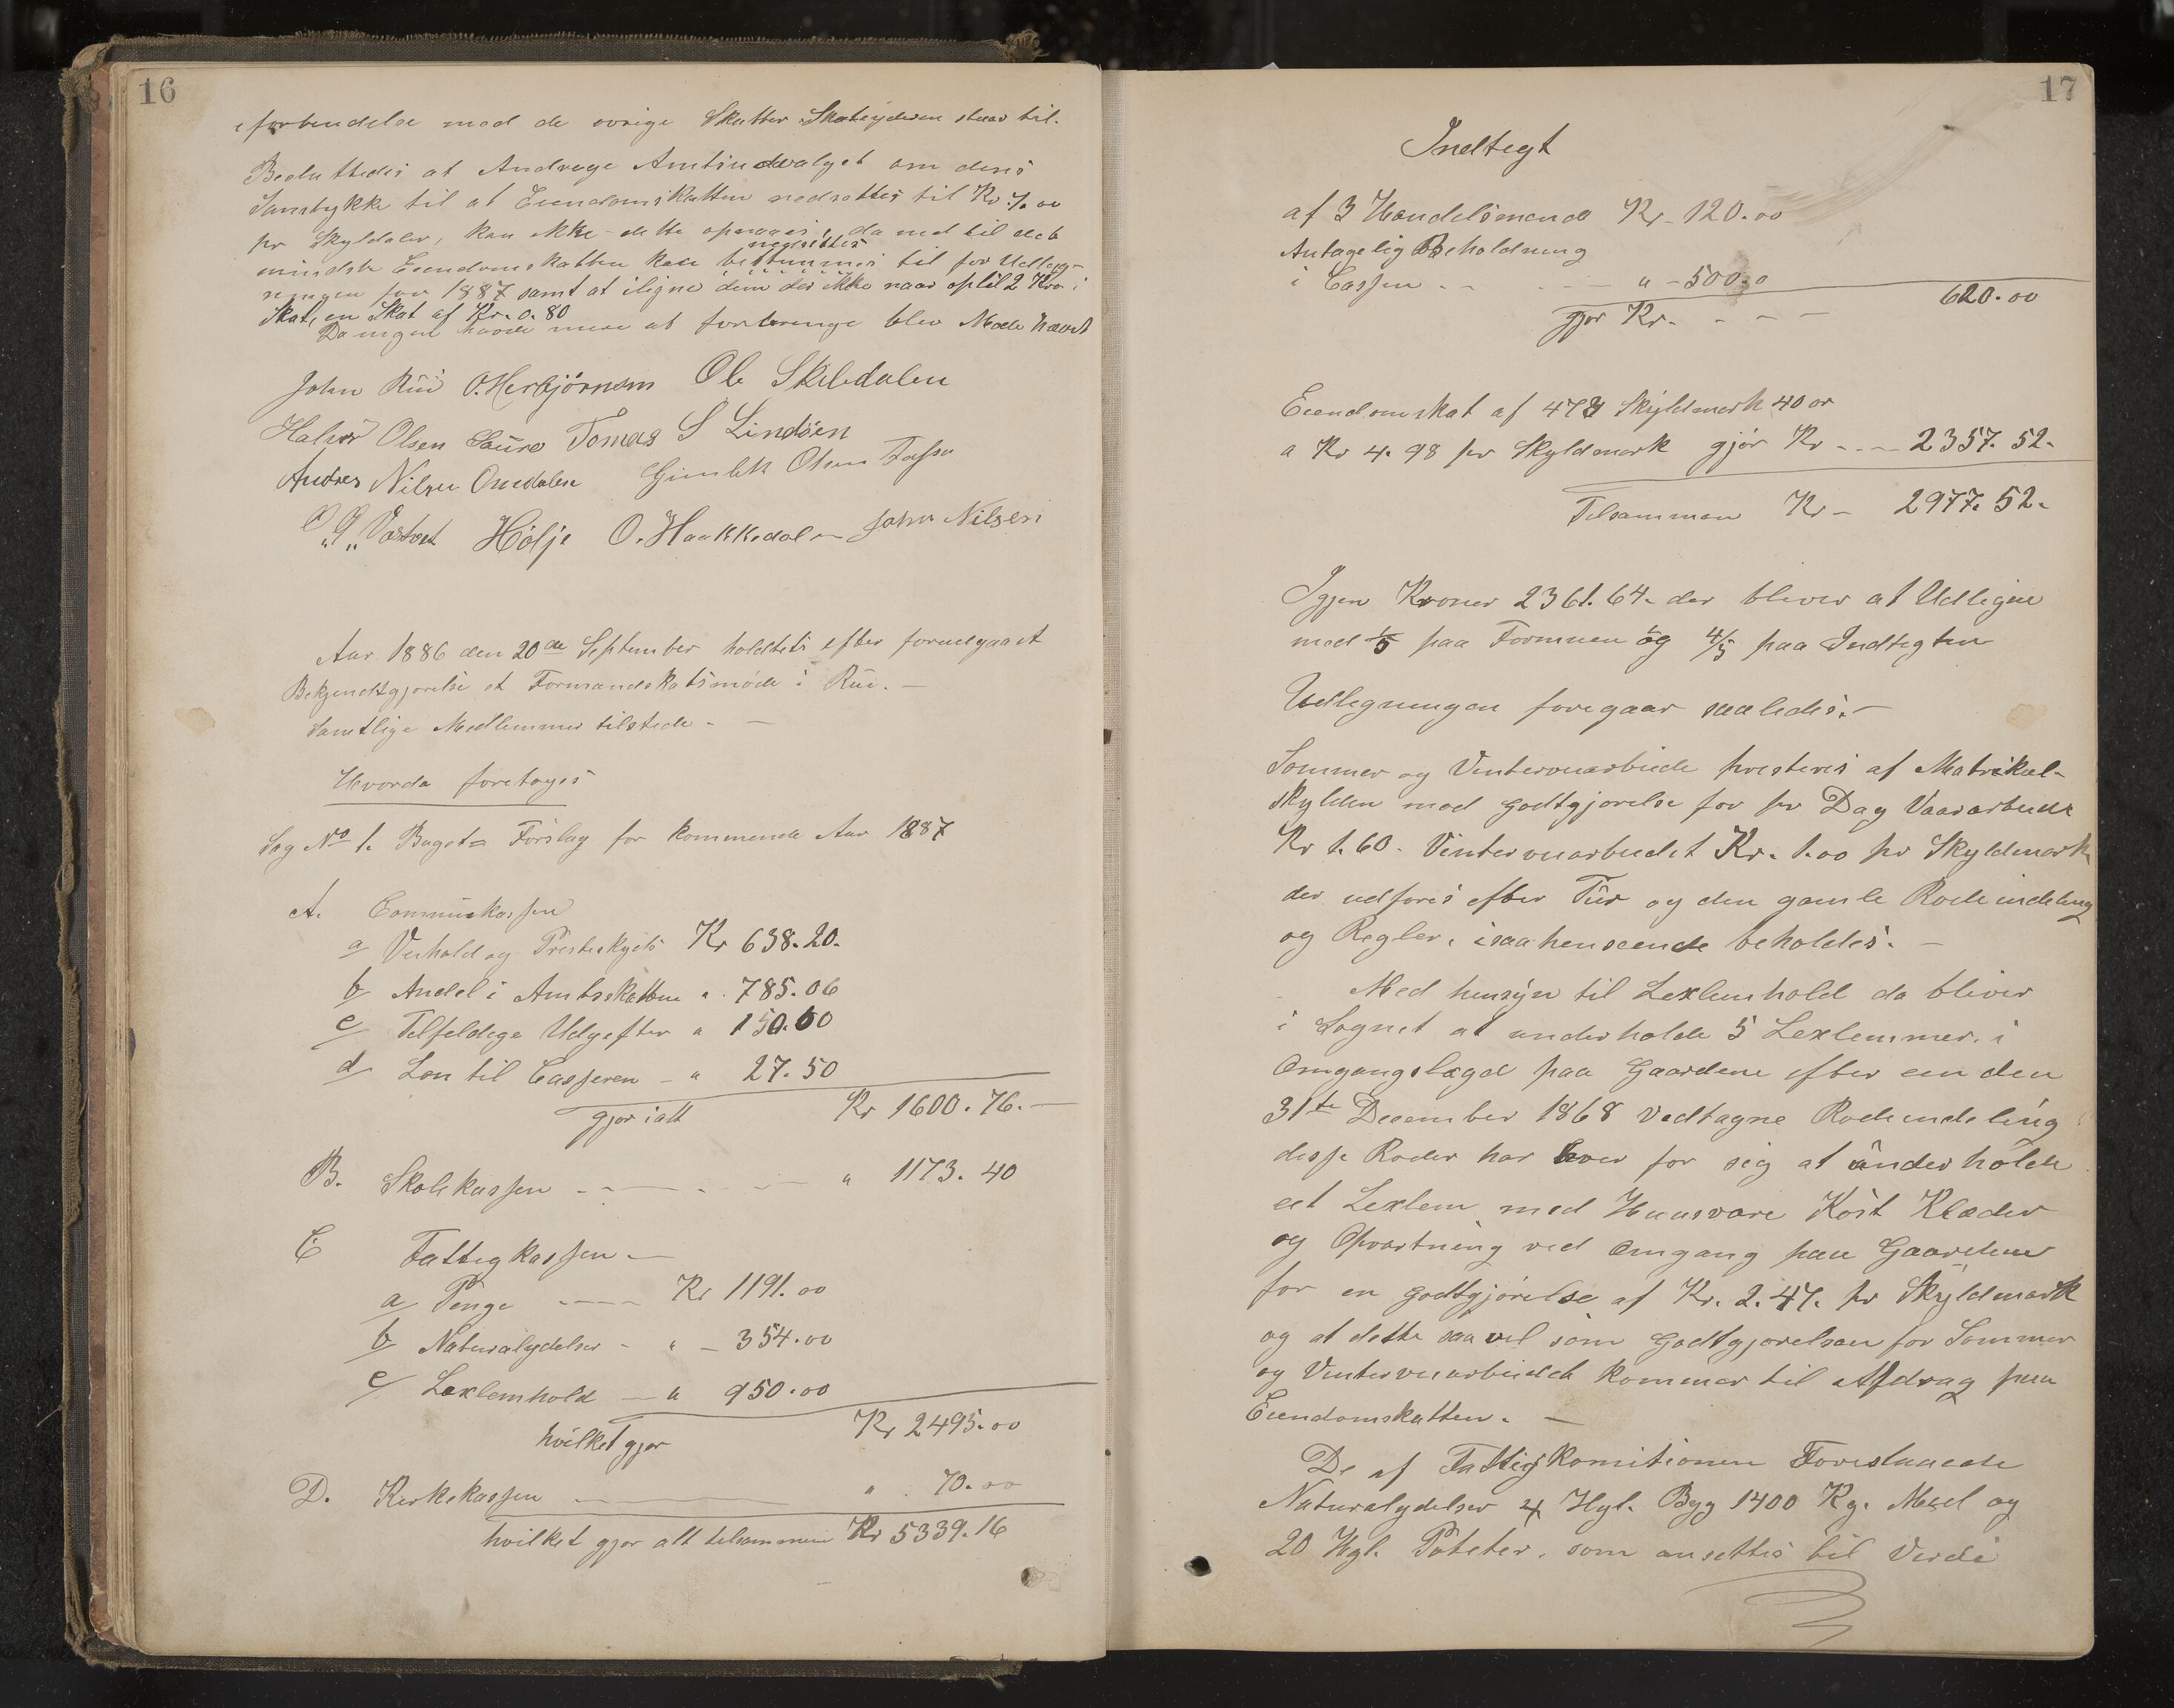 16
i forbindelse med de øvrige Skatter Skatteyderen staar til.
Besluttedes at Andrage Amtsudvalget om deres
Samtykke til at Eiendomskatten nedsættes til Kr 1.00
pr Skyldaler, kan ikke dette opnaaes, da ned til det
nedsættes
mindste Eiendomskatten kan bestemmes til for Udlig-
ningen for 1887 samt at iligne dem der ikke naar optil 2 Kro i
Skat, en Skat af Kr. 0.80
Da ingen havde mere at forbringe blev Mødet hævet
John Rui O. Herbjörnsen Ole Skibdalen
Halvor Olsen Saure Tomas S Lindöen
Andres Nilsen Omdalen Gunlek Olsen
O G Vastveit Höljе O. Haakkedalen John Nilsen
Aar 1886 den 20de September holdtes efter forudgaaet
Bekjendtgjørelse et Formandskabsmøde i Rui. —
Samtlige Medlemmer tilstede. —
Hvorda foretoges
Sag No 1. Buget= Forslag for kommende Aar 1887
A. Communekassen
a Veihold og Presteskyds Kr 638.20.
b Andel i Amtsskatten " 785.06
c Tilfeldige Udgifter " 150.00
d Løn til Casseren - " 27.50
gjør i alt Kr 1600.76. —
B. Skolekassen - - - - " 1173.40
C Fattigkassen —
a Penge ---- Kr 1191.00
b Naturalydelser - " - 354.00
c Lexlemhold - " 950.00
hvilket gjør Kr 2495.00
D. Kirkekassen ——— " 70.00
hvilket gjør alt tilsammen Kr 5339.16
17
Indtegt
af 3 Handelsmænd Kr - 120.00
Antagelig Beholdning
i Cassen - - - - " - 500.0
gjør Kr. - - - 620.00
Eiendomskat af 473 Skyldmark 40 ør
a Kr 4.98 pr Skyldmark gjør Kr - - - 2357.52.
Tilsammen Kr - 2977.52.
Igjen Kroner 2361.64. der bliver at Udligne
med 1/5 paa Formuen og 4/5 paa Indtegten
Udlegningen foregaar saaledes. —
Sommer og Vinterveiarbeide presteres af Matrikul-
skylden mod godtgjørelse for pr Dag Vaararbeide
Kr 1.60. Vinterveiarbeidet Kr. 1.00 pr Skyldmark
der udføres efter Tur og den gamle Rodeindeling
og Regler, i saa henseende beholdes. —
Med hensyn til Lexlemhold da bliver
i Sognet at underholde 5 Lexlemmer. i
Omgangslægd paa Gaardene efter een den
31te December 1868 Vedtagne Rodeindeling
disse Roder har hver for sig at underholde
eet Lexlem med Huusvære Kost Klæder
og Opvartning ved Omgang paa Gaardene
for en godtgjørelse af Kr. 2.47. pr Skyldmark
og at dette saa vel som Godtgjørelsen for Sommer
og Vinterveiarbeidet kommer til Afdrag paa
Eiendomskatten. —
De af Fattigkomitionen Foreslaaede
Naturalydelser 4 Hgl. Byg 1400 Kg. Meel og
20 Hgl. Poteter, som ansettes til Verdi